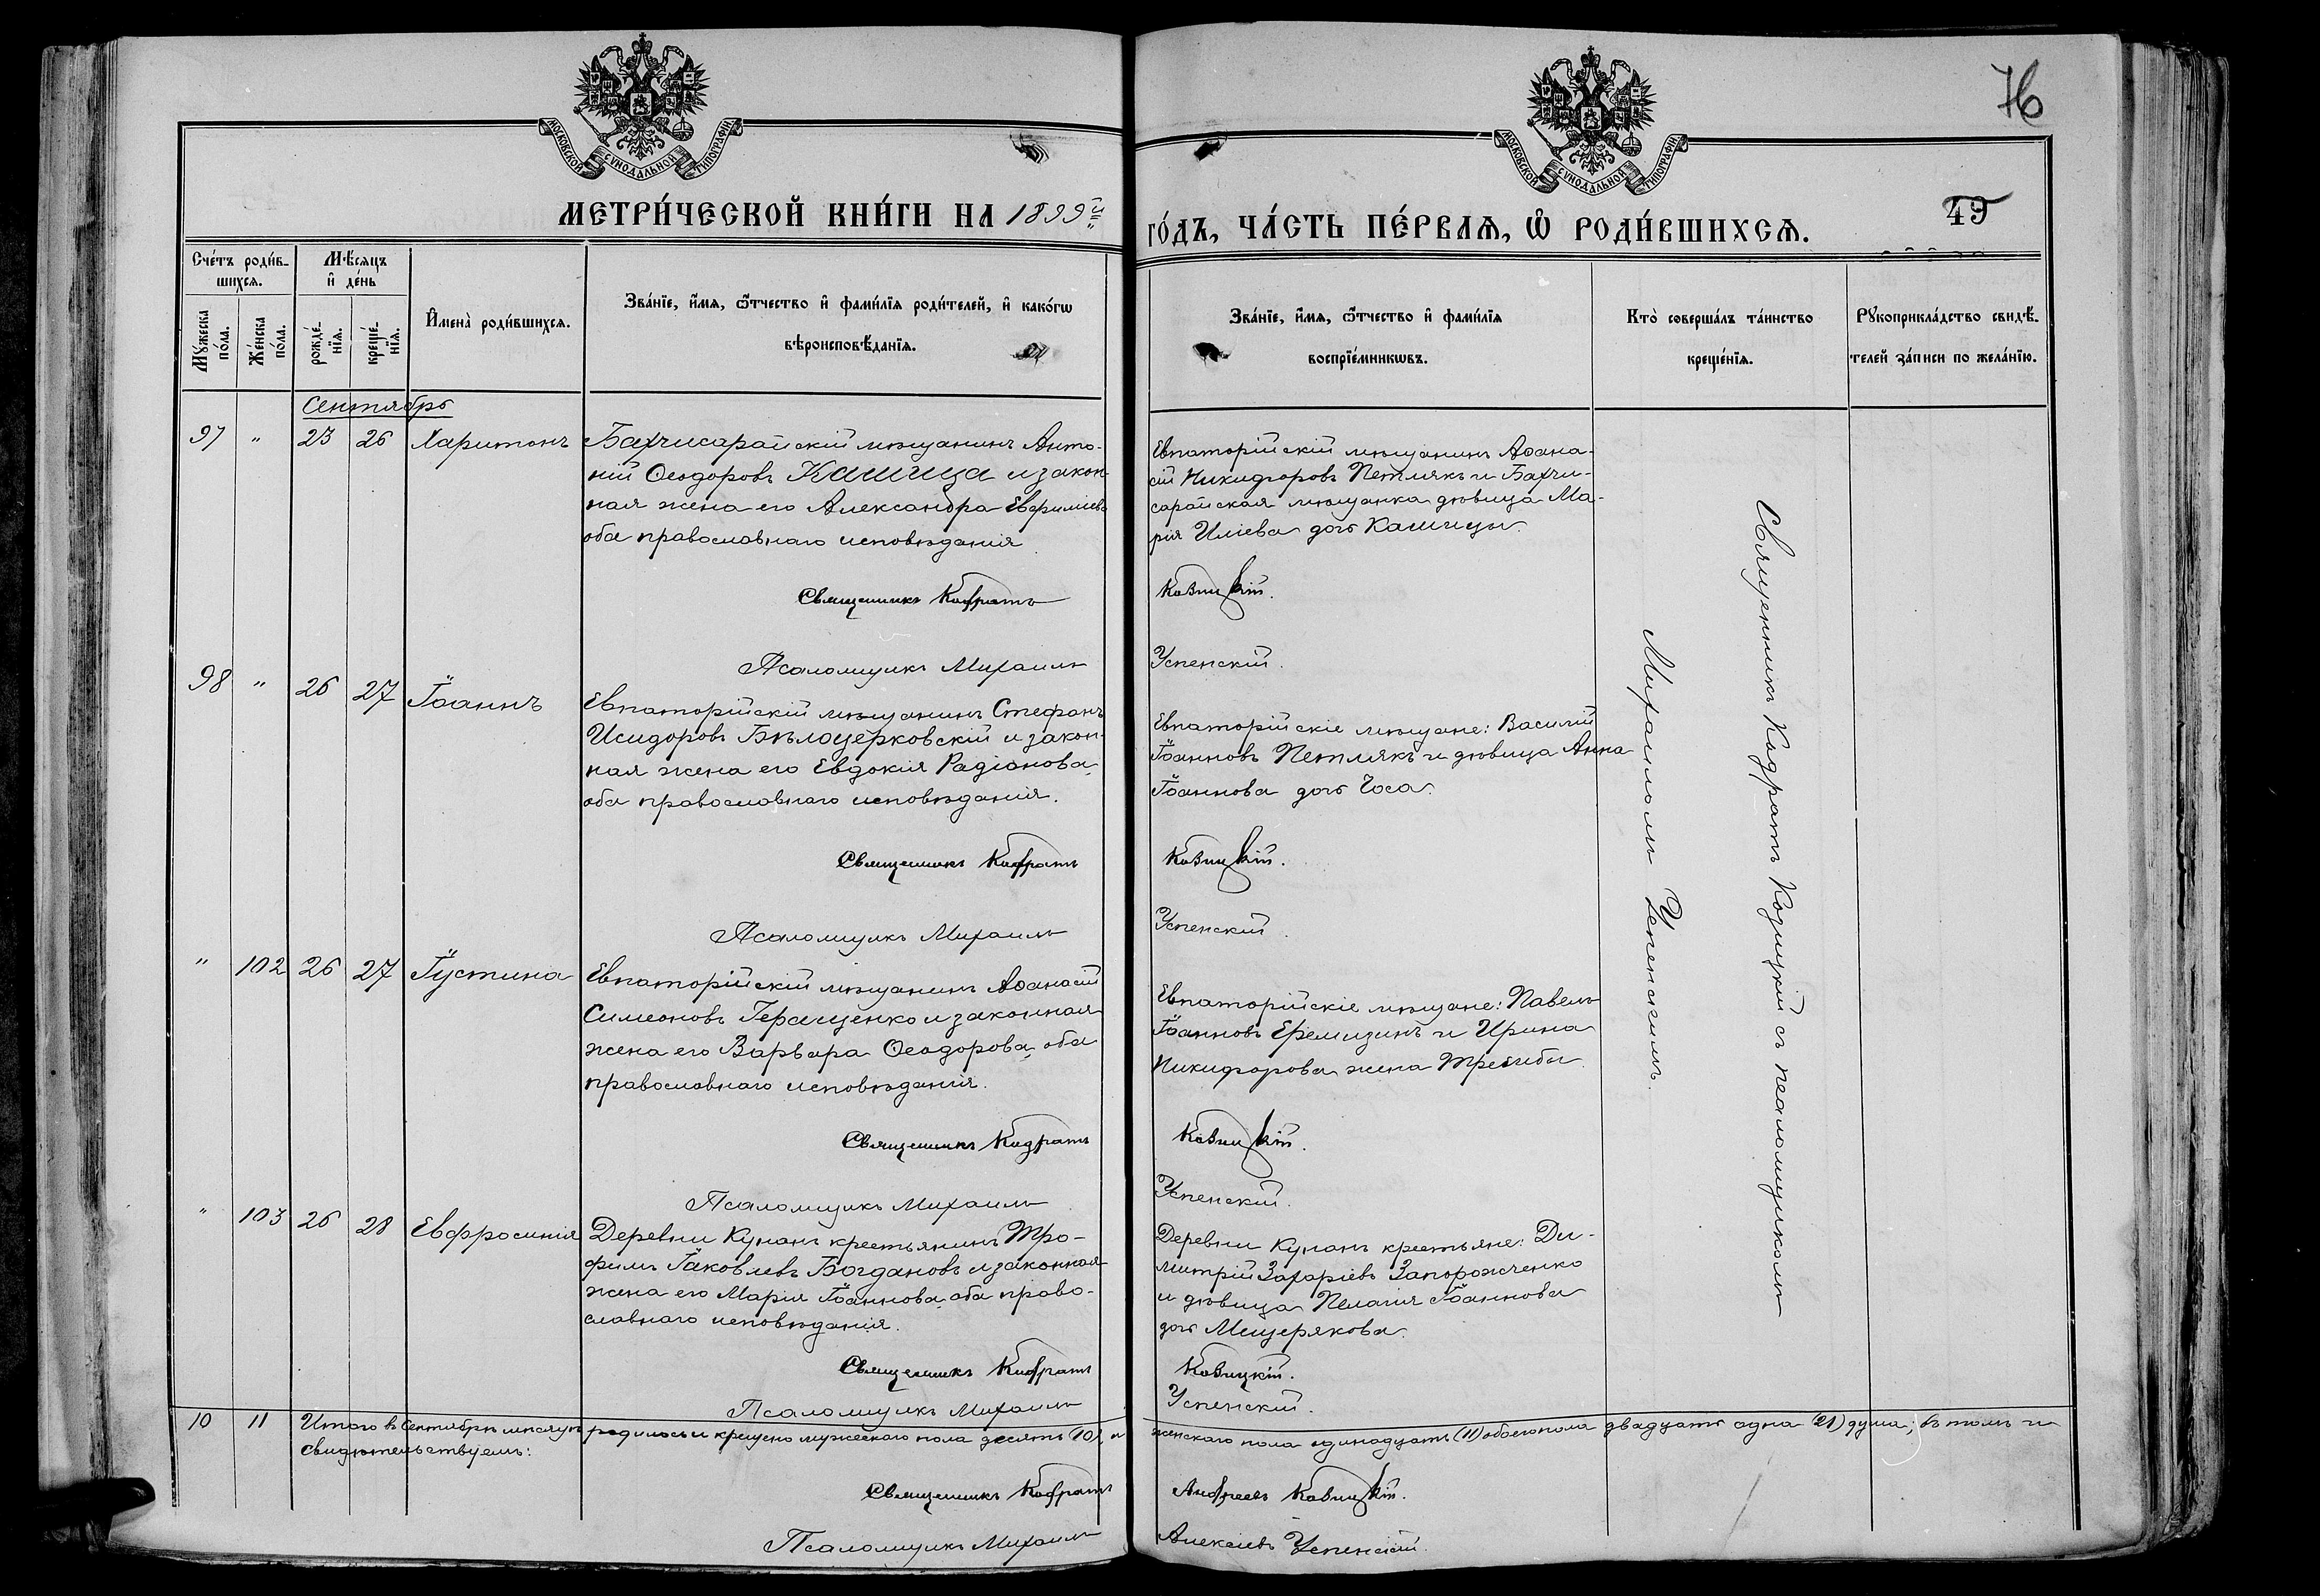 76
МОСКОВСКОЙ СѴНОДАЛЬНОЙ ТИПОГРАФІИ
МОСКОВСКОЙ СѴНОДАЛЬНОЙ ТИПОГРАФІИ
МЕТРИ́ЧЕСКОЙ КНИ́ГИ НА 1899й
ГО́ДЪ, ЧА́СТЬ ПЕ́РВАѦ, Ѡ РОДИ́ВШИХСѦ.
49
Сче́тъ роди́в-
шихсѧ.
Мꙋ́жеска по́ла.
Же́нска по́ла.
Мѣ́сѧцъ
и҆ де́нь
рожде́-нїѧ.
креще́-нїѧ.
И҆мена̀ роди́вшихсѧ.
Зва́нїе, и҆́мѧ, ѻ҆́тчество и҆ фами́лїѧ роди́телей, и҆ како́гѡ
вѣроисповѣ́данїѧ.
Зва́нїе, и҆́мѧ, ѻ҆́тчество и҆ фами́лїѧ
воспрїе́мникѡвъ.
Кто̀ соверша́лъ та́инство
креще́нїѧ.
Рꙋкоприкла́дство свидѣ́-
телей за́писи по жела́нїю.
Сентябрь
97 " 23 26 Харитонъ
Бахчисарайскій мѣщанинъ Анто-
ній Ѳеодоровъ Кашица и закон-
ная жена его Александра Евфиміева
оба православнаго исповѣданія
Священникъ Кодратъ
Псаломщикъ Михаилъ
Евпаторійскій мѣщанинъ Аѳана-
сій Никифоровъ Петлякъ и Бахчи-
сарайская мѣщанка дѣвица Ма-
рія Иліева дочь Кашицы.
Козицкій.
Успенскій.
98 " 26 27 Іоаннъ
Евпаторійскій мѣщанинъ Стефанъ
Исидоровъ Бѣлоцерковскій и закон-
ная жена его Евдокія Радіонова,
оба православнаго исповѣданія.
Священникъ Кодратъ
Псаломщикъ Михаилъ
Евпаторійскіе мѣщане: Василій
Іоанновъ Петлякъ и дѣвица Анна
Іоаннова дочь Чоса.
Козицкій.
Успенскій.
" 102 26 27 Іустина
Евпаторійскій мѣщанинъ Аѳанасій
Симеоновъ Геращенко и законная
жена его Варвара Ѳеодорова, оба
православнаго исповѣданія.
Священникъ Кодратъ
Псаломщикъ Михаилъ
Евпаторійскіе мѣщане: Павелъ
Іоанновъ Еремизинъ и Ирина
Никифорова жена
Козицкій.
Успенскій.
" 103 26 28 Евфросинія
Деревни крестьянинъ Тро-
фимъ Іаковлевъ Богдановъ и законная
жена его Марія Іоаннова, оба право-
славнаго исповѣданія.
Священникъ Кодратъ
Псаломщикъ Михаилъ
Деревни крестьяне: Ди-
митрій Захаріевъ Запорожченко
и дѣвица Пелагія Іоаннова
дочь Мещерякова.
Козицкій.
Успенскій.
Священникъ Кодратъ Козицкій съ псаломщикомъ
Михаиломъ Успенскимъ.
10 11 Итого въ Сентябрѣ мѣсяцѣ родилось и крещено мужескаго пола десять (10), и женскаго пола одинадцать (11) обоего пола двадцать одна (21) душа; въ томъ и
свидѣтельствуемъ:
Священникъ Кодратъ Андреевъ Козицкій.
Псаломщикъ Михаилъ Алексіевъ Успенскій.